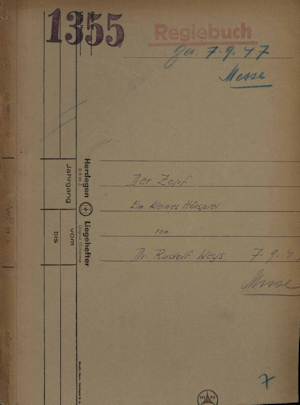 1355
Regiebuch
Ges. 7.9.47
Messe
Herdegen Liegehefter
Jahrgang
vom
bis
Der Zopf
Ein kleines Hörspiel
von
Dr. Rudolf Weys 7.9.47
Messe
7